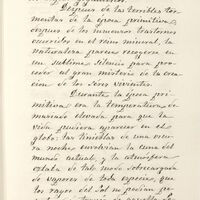 Despues de las terribles tor-
mentas de la época primitiva,
despues de los inmensos trastornos
ocurridos en el reino mineral, la
naturaleza parece recogerse en
un sublime silencio para pro-
ceder al gran misterio de la crea-
cion de los seres vivientes.
Durante la época pri-
mitiva era la temperatura de-
masiado elevada para que la
vida pudiera aparecer en el
globo; las tinieblas de una
noche envolvian la cuna del
mundo actual, y la atmósfera
estaba de tal modo sobrecargada
de vapores de toda especie, que
los rayos del Sol no podian